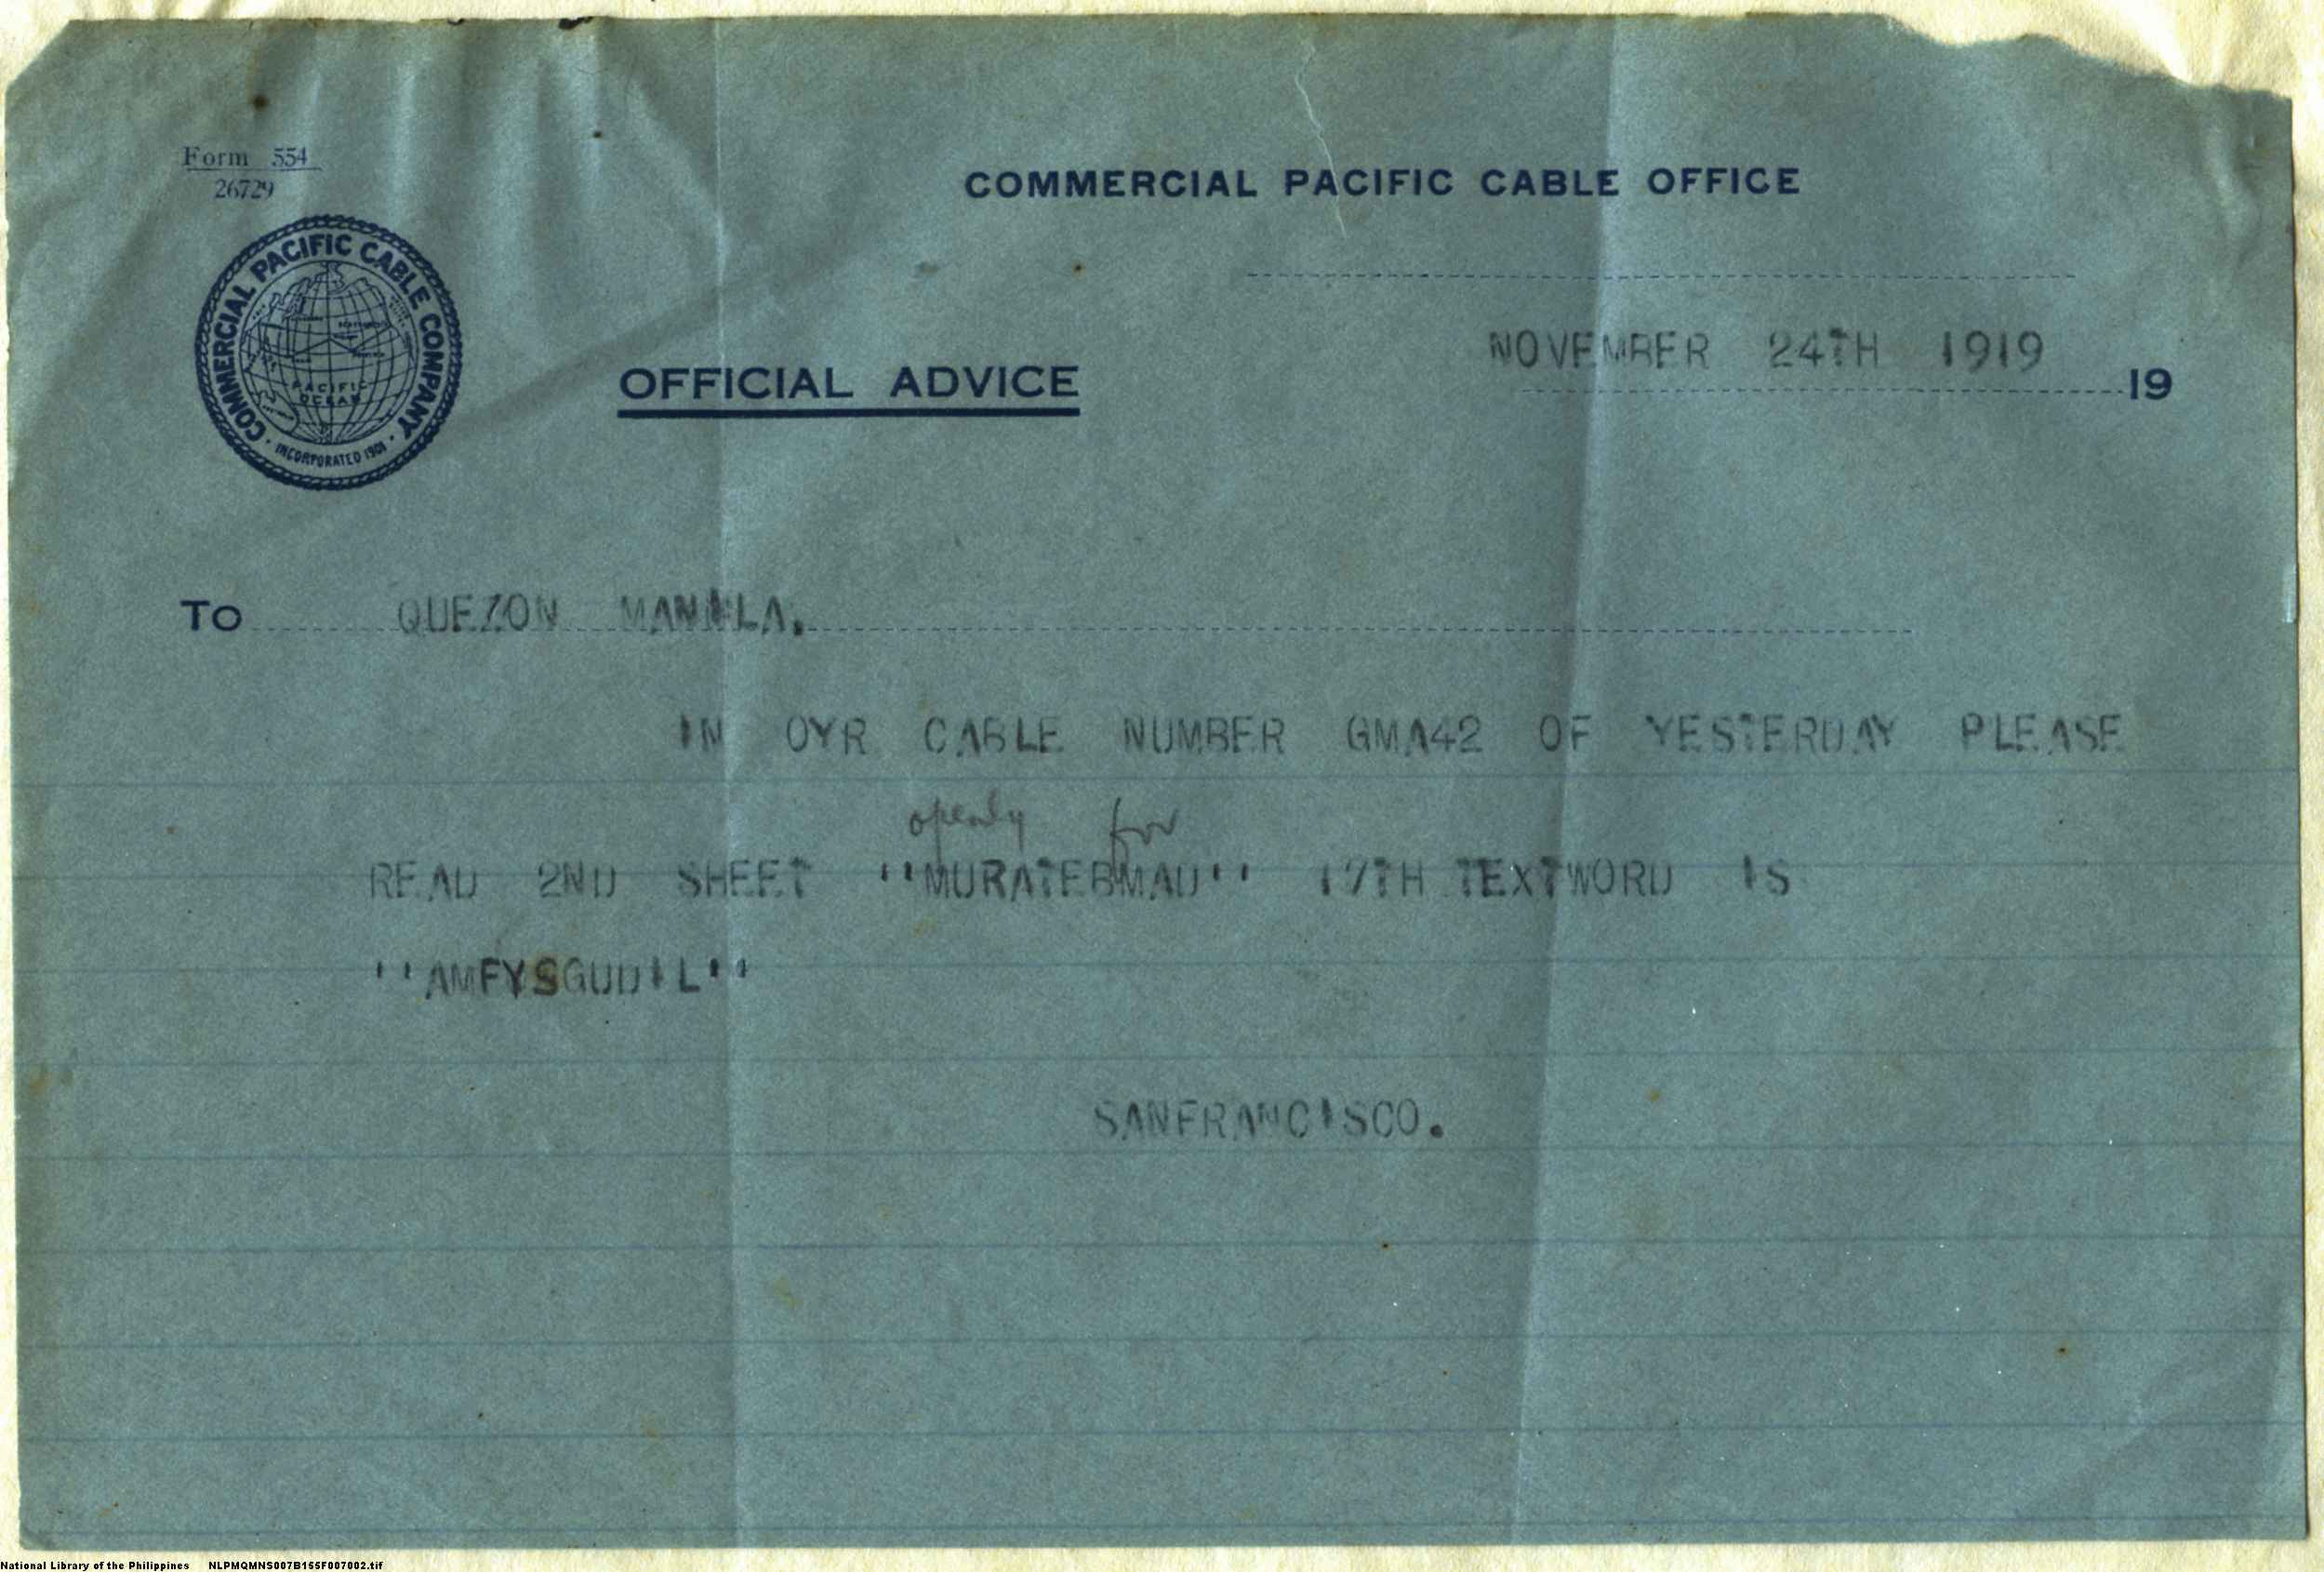 Form 554
26729
COMMERCIAL PACIFIC CABLE OFFICE
COMMERCIAL PACIFIC CABLE COMPANY
PACIFIC
OCEAN
INCORPORATED 1901
NOVEMBER 24TH 1919
19
OFFICIAL ADVICE
To QUEZON MANILA.
IN OYR CABLE NUMBER GMA42 OF YESTERDAY PLEASE
openly for
READ 2ND SHEET ''MURATEBMAD'' 17TH TEXTWORD IS
''AMFYSGUDIL''
SANFRANCISCO.
National Library of the Philippines NLPMQMNS007B155F007002.tif